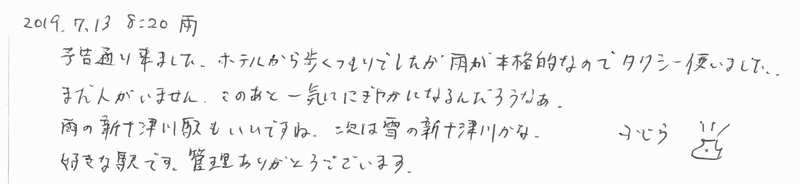 2019.7.13 8:20 雨
予告通り来ました。ホテルから歩くつもりでしたが雨が本格的なのでタクシー使いました。
まだ人がいません。このあと一気ににぎやかになるんだろうなぁ。
雨の新十津川駅もいいですね。次は雪の新十津川かな。 ふじら
好きな駅です。管理ありがとうございます。